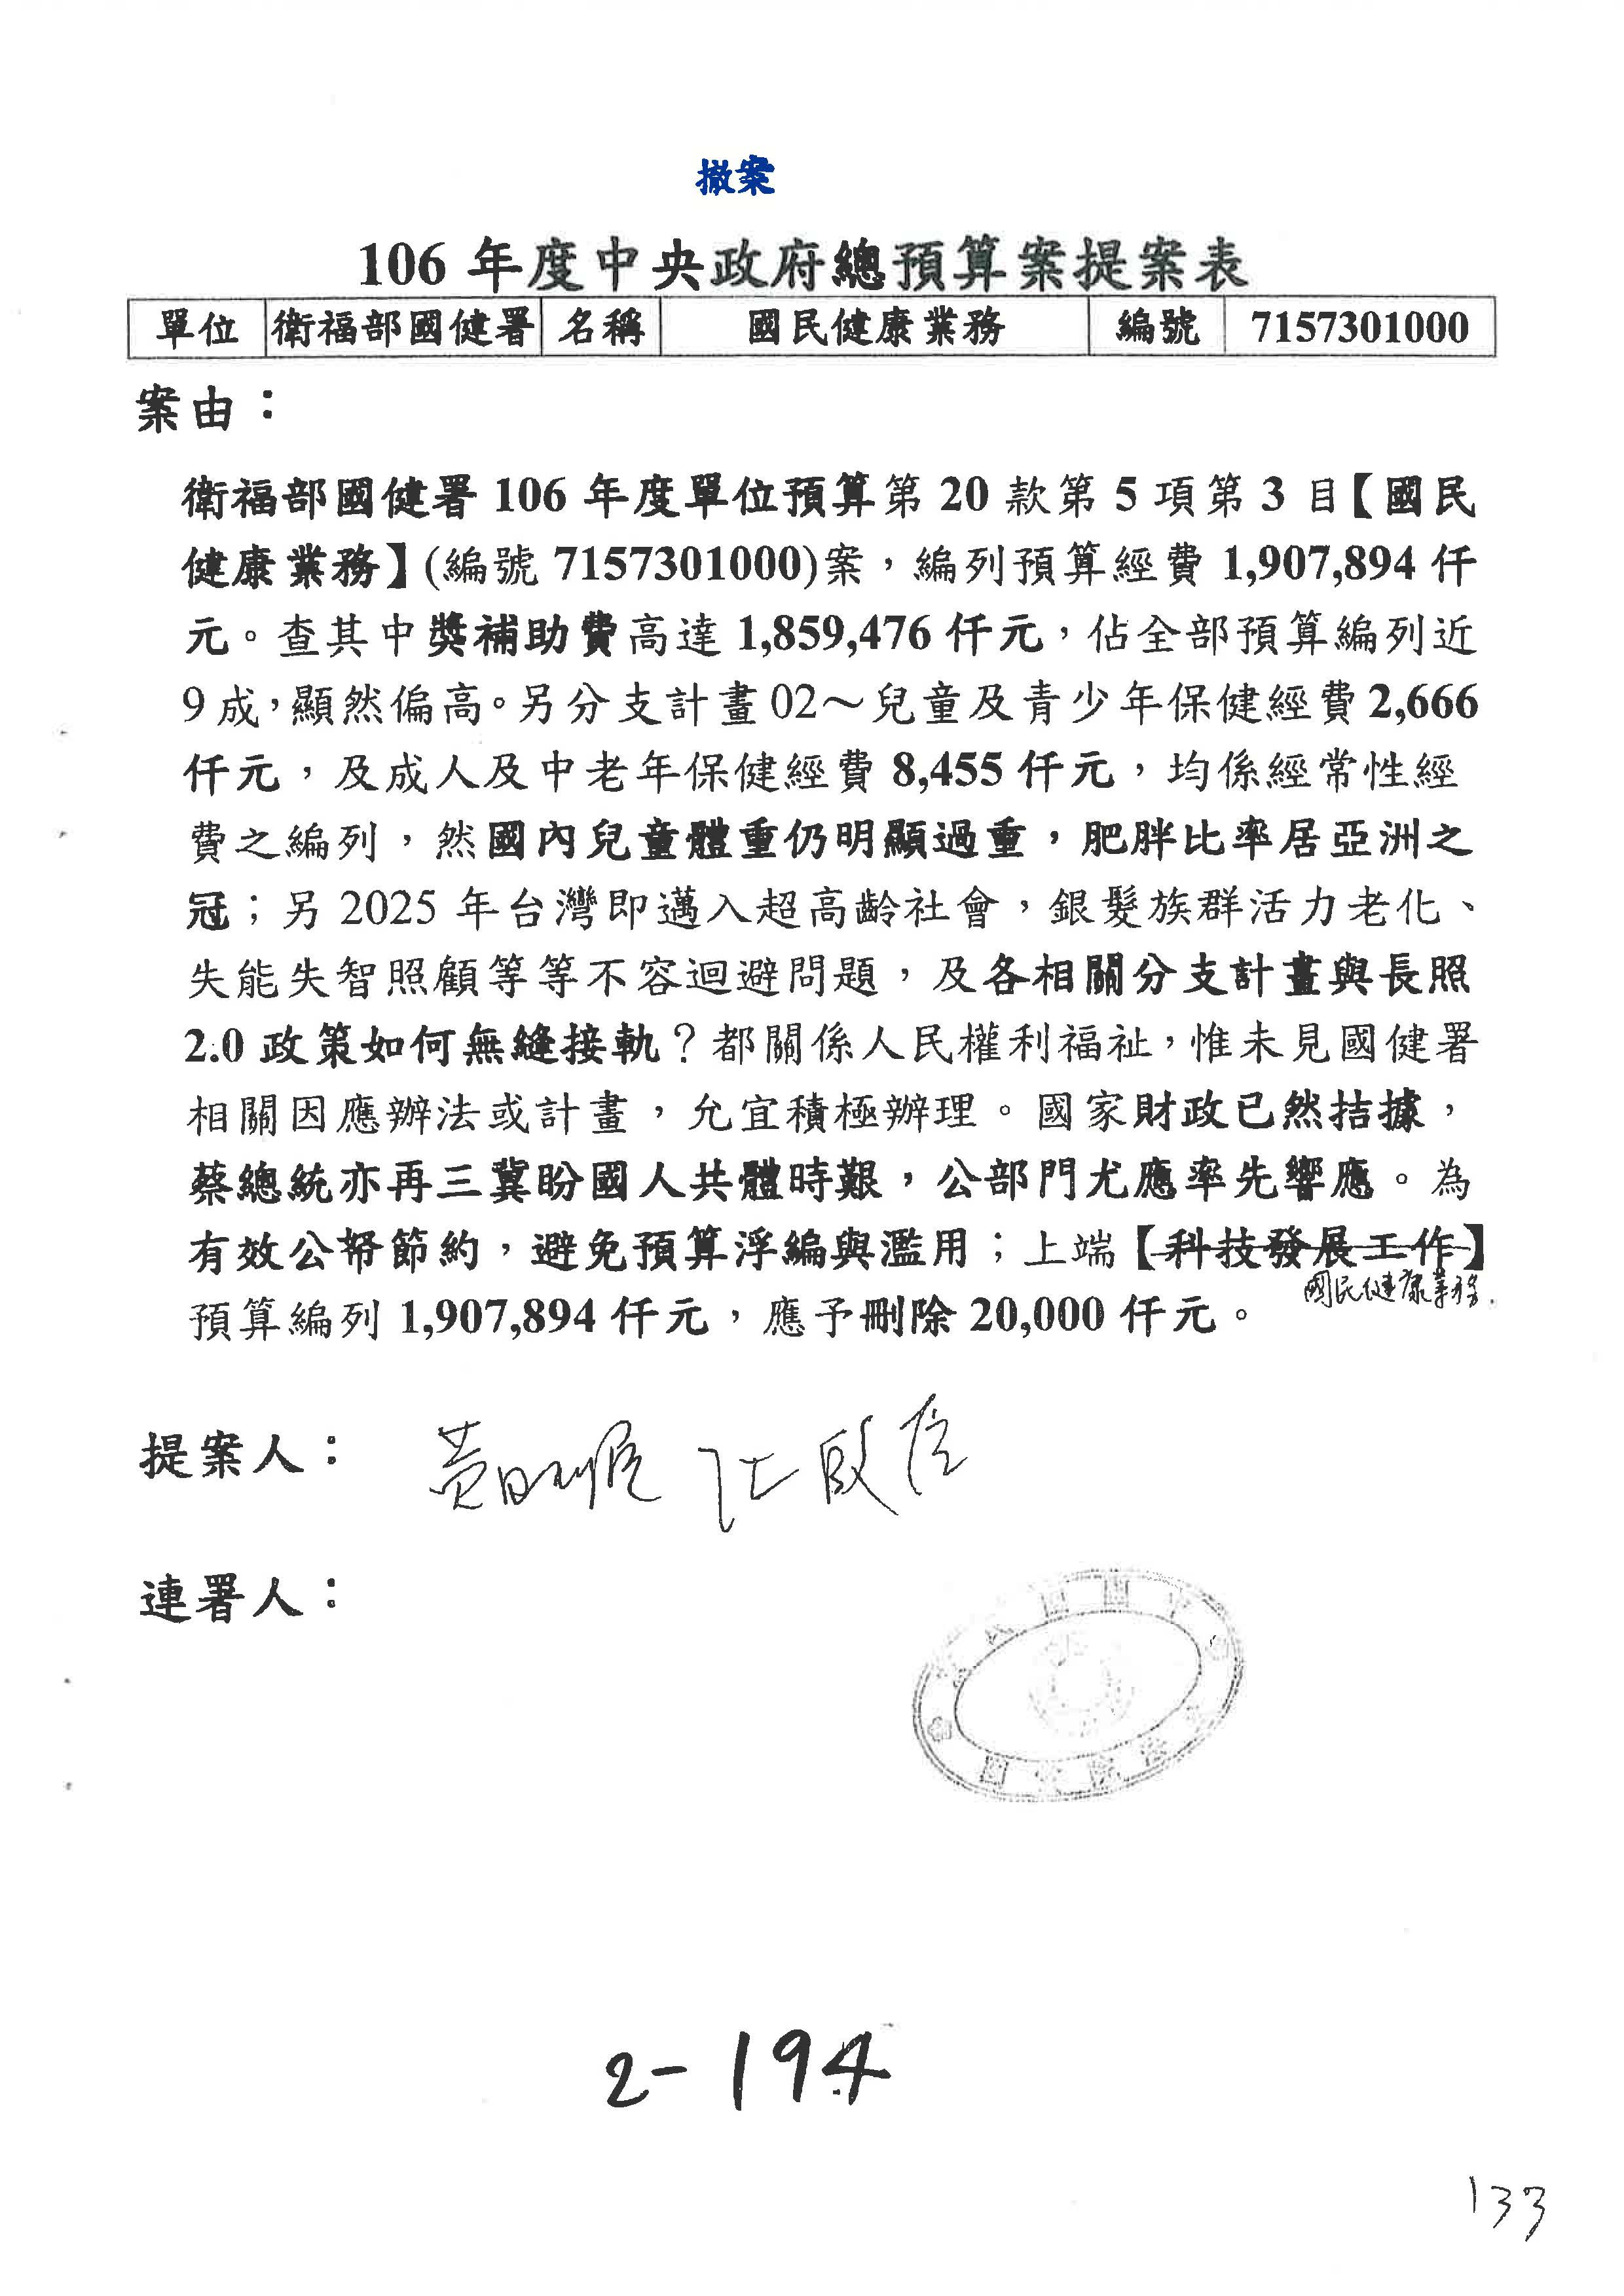 撤案
106 年度中央政府總預算案提案表
單位 衛福部國健署 名稱 國民健康業務 編號 7157301000
案由：
衛福部國健署 106 年度單位預算第 20 款第 5 項第 3 目【國民
健康業務】(編號 7157301000)案，編列預算經費 1,907,894 仟
元。查其中獎補助費高達 1,859,476 仟元，佔全部預算編列近
9 成，顯然偏高。另分支計畫 02～兒童及青少年保健經費 2,666
仟元，及成人及中老年保健經費 8,455 仟元，均係經常性經
費之編列，然國內兒童體重仍明顯過重，肥胖比率居亞洲之
冠；另 2025 年台灣即邁入超高齡社會，銀髮族群活力老化、
失能失智照顧等等不容迴避問題，及各相關分支計畫與長照
2.0 政策如何無縫接軌？都關係人民權利福祉，惟未見國健署
相關因應辦法或計畫，允宜積極辦理。國家財政已然拮据，
蔡總統亦再三冀盼國人共體時艱，公部門尤應率先響應。為
有效公帑節約，避免預算浮編與濫用；上端【科技發展工作】
國民健康業務
預算編列 1,907,894 仟元，應予刪除 20,000 仟元。
提案人： 黃昭順 陳
連署人：
2-194
133